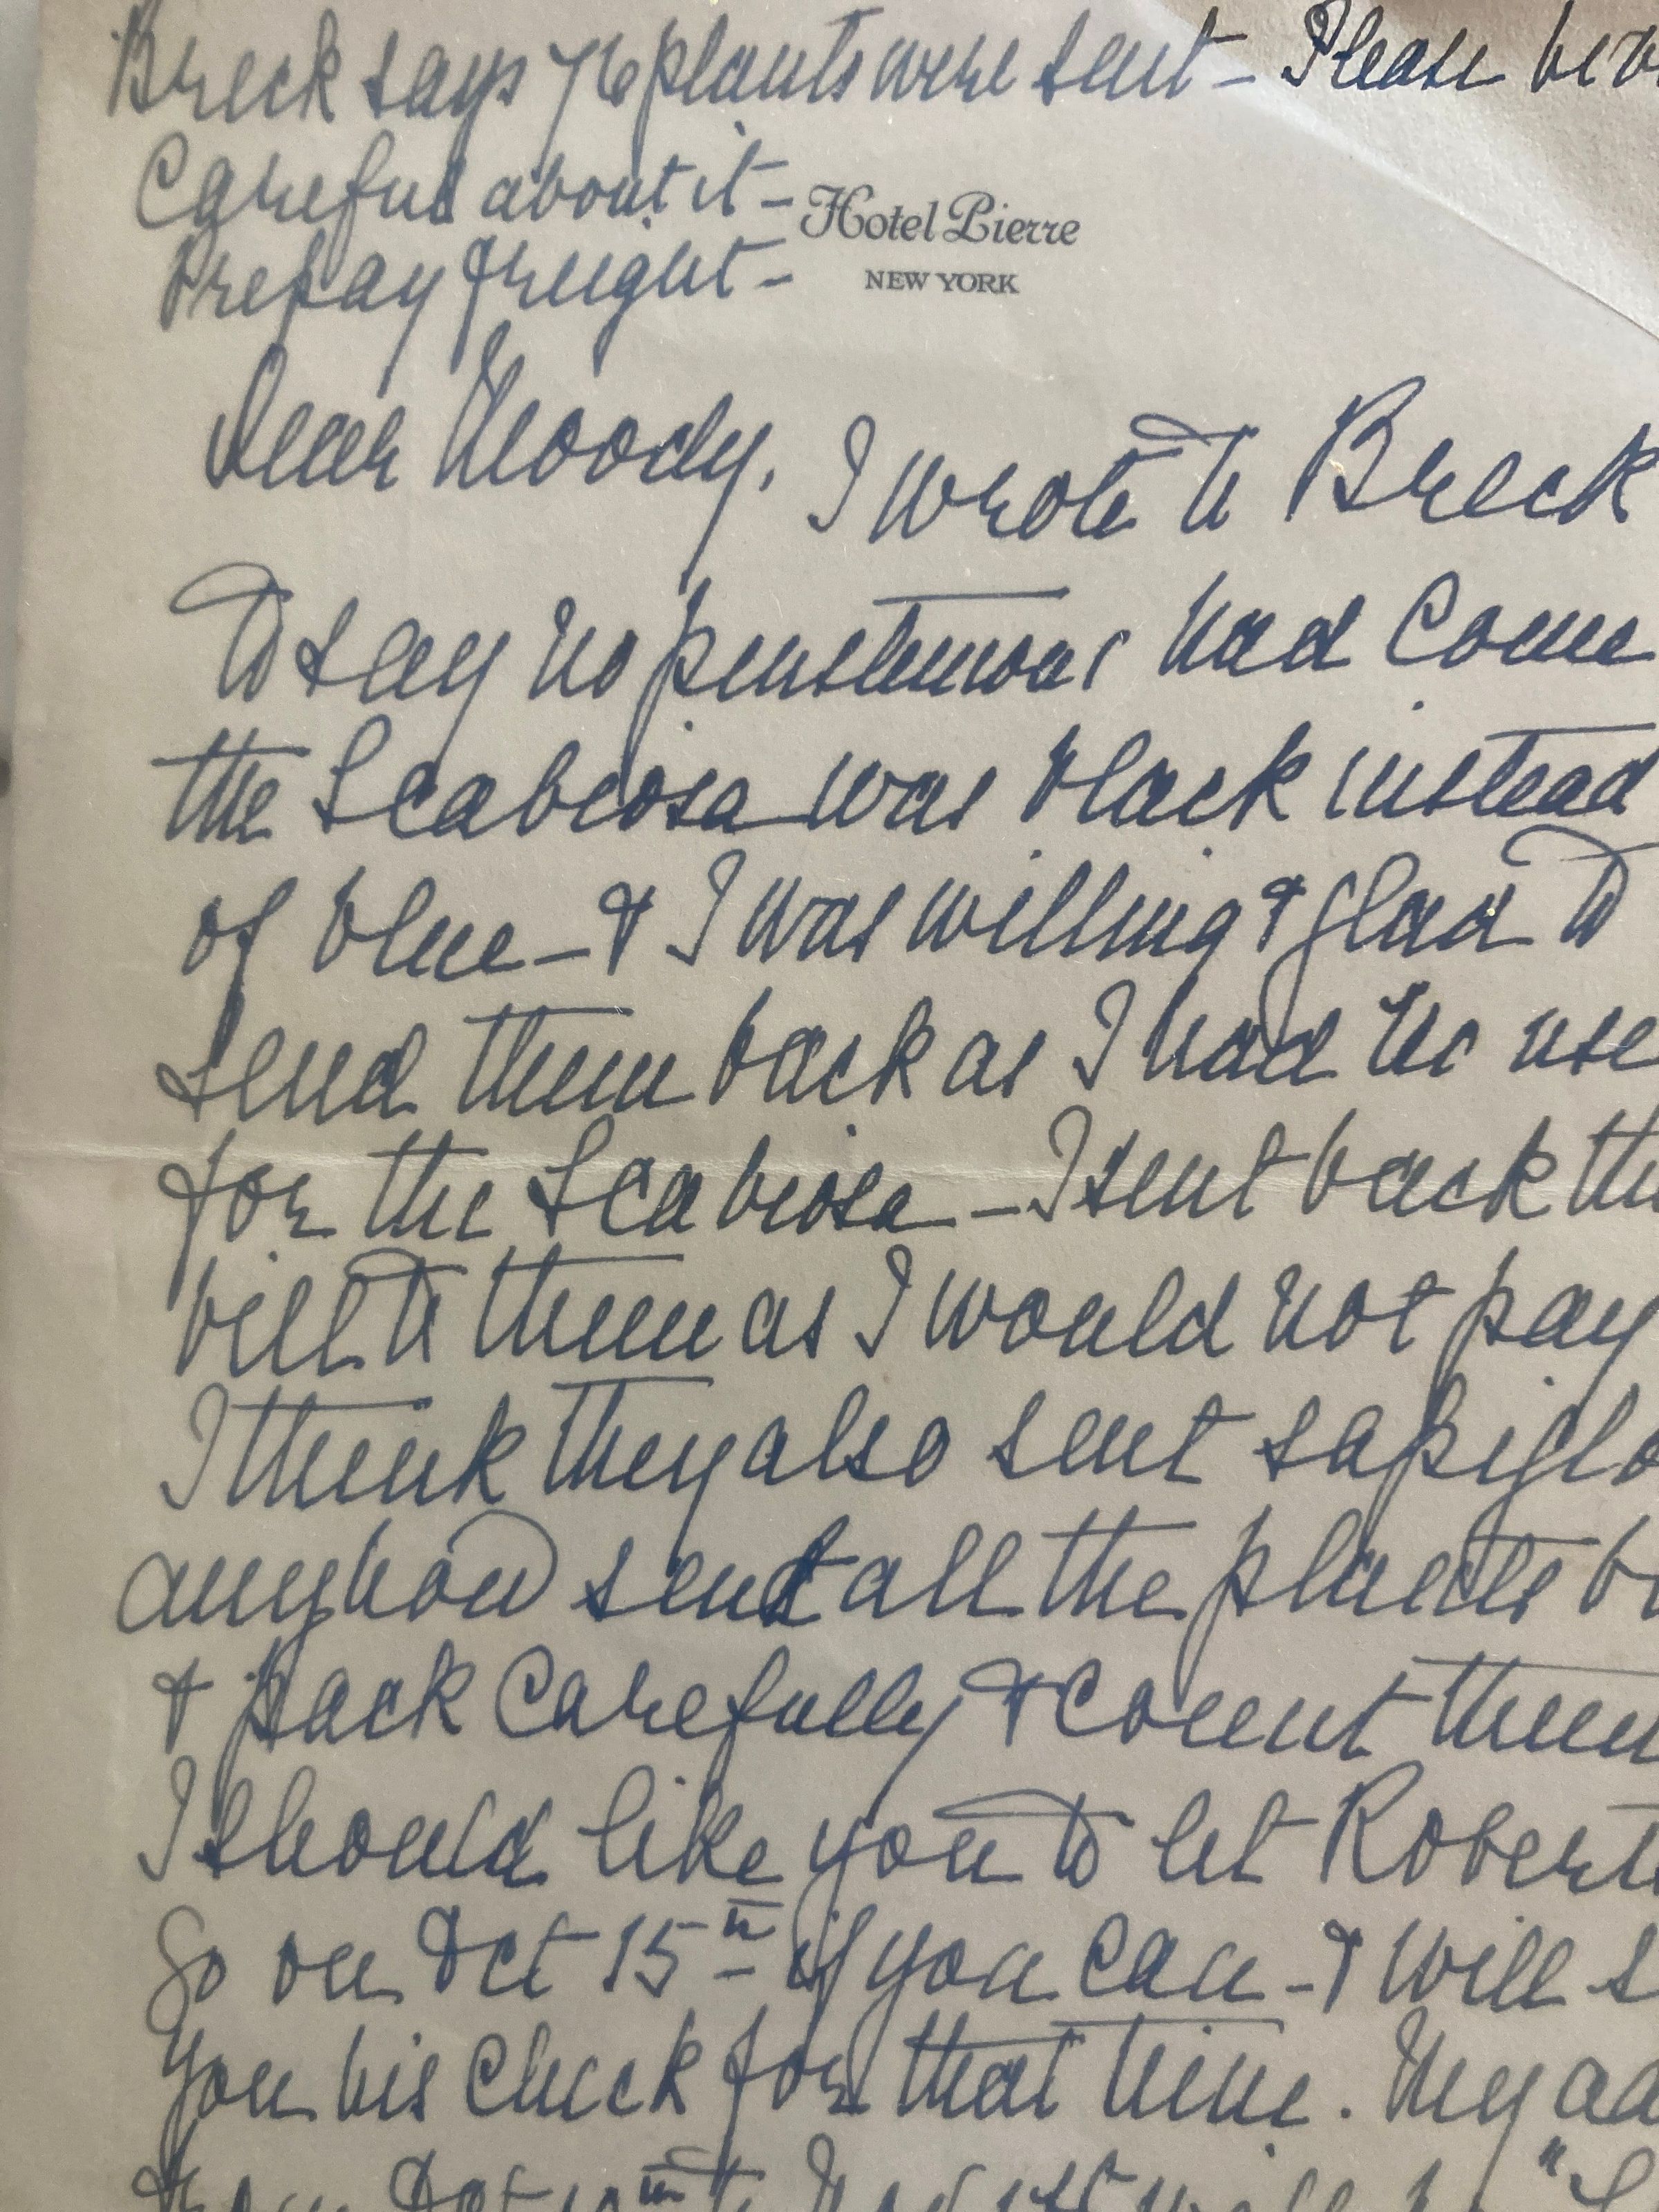 Breck says 76 plants were sent – Please be
Careful about it –
Hotel Pierre
NEW YORK
Prepay freight –
Dear Moody, I wrote to Breck
to say no penstemons had come
the Scabiosa was black instead
of blue – & I was willing & glad to
send them back as I had no use
for the Scabiosa – I sent back the
bill to them as I would not pay
I think they also sent sapiglo
anyhow send all the plants b
& pack carefully & count them
I should like you to let Robert
go on Oct 15th – if you can – & will s
you his check for that time. My ad
from Oct